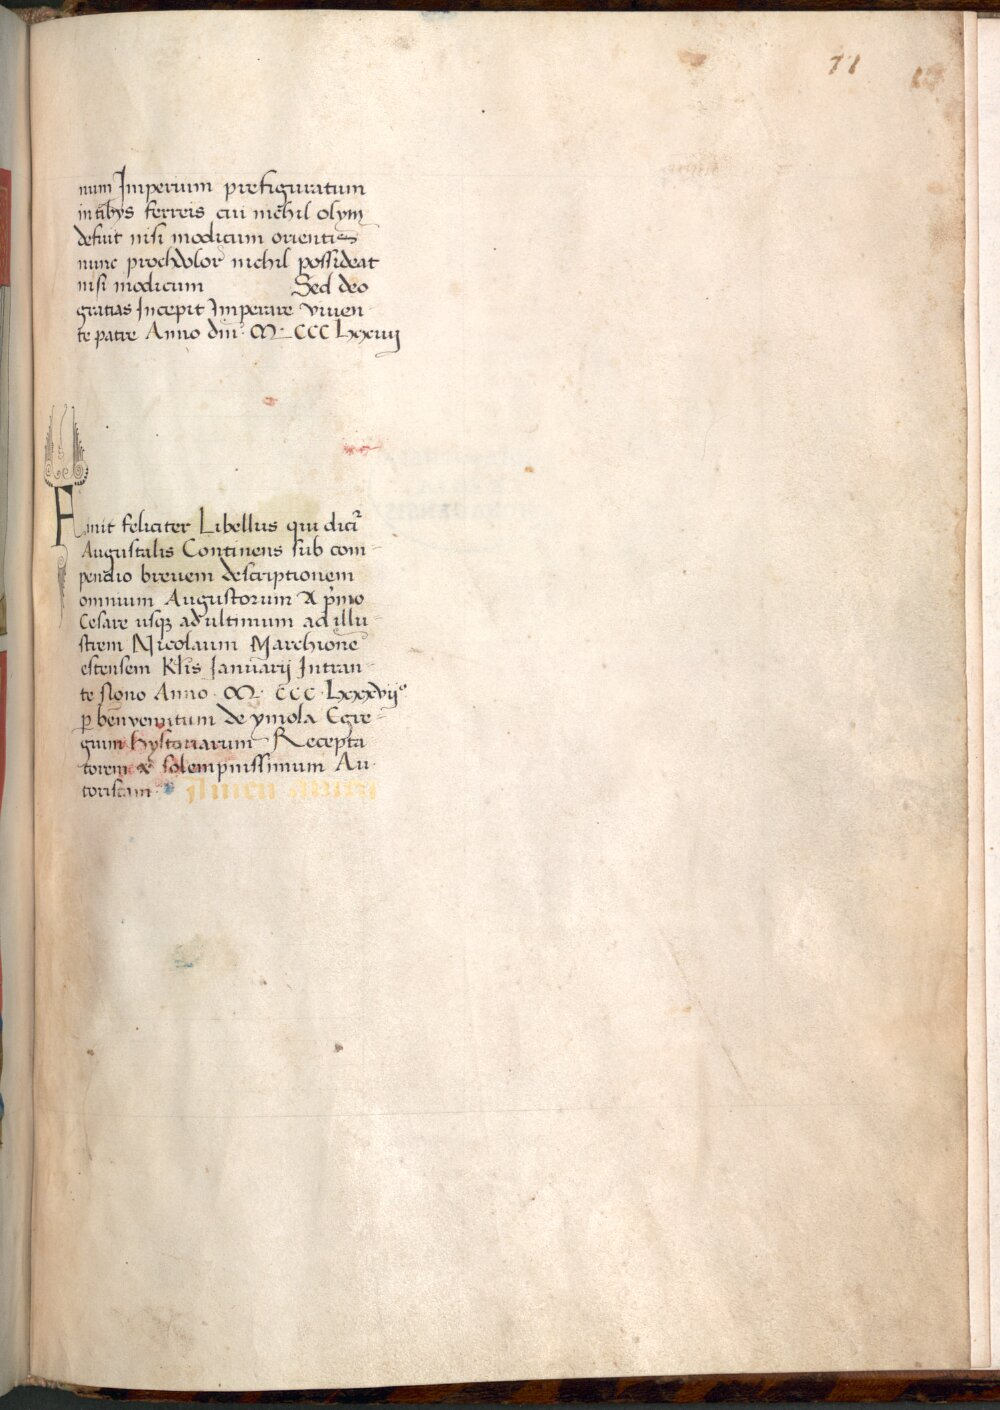 71
num Imperium prefiguratum
in tibÿs ferreis cui nichil olym
defuit nisi modicum orientis
nunc prochdolor nichil possideat
nisi modicum Sed deo
gratias Incepit Imperare viuen
te patre Anno dni̅ · M · CCC Lxxviij
Finit feliciter Libellus qui dicit̃
Augustalis Continens sub com-
pendio breuem descriptionem
omnium Augustorum A p̃mo
Cesare usqꝫ ad ultimum ad illu-
strem Nicolaum Marchione̅
estensem Kl̅is Ianuarij Intran-
te Nono Anno · M · CCC · Lxxxvij°
ꝑ benvenutum de ymola Egre-
gium hystoriarum Recepta
torem & solempnissimum Au-
toristam Amen amen